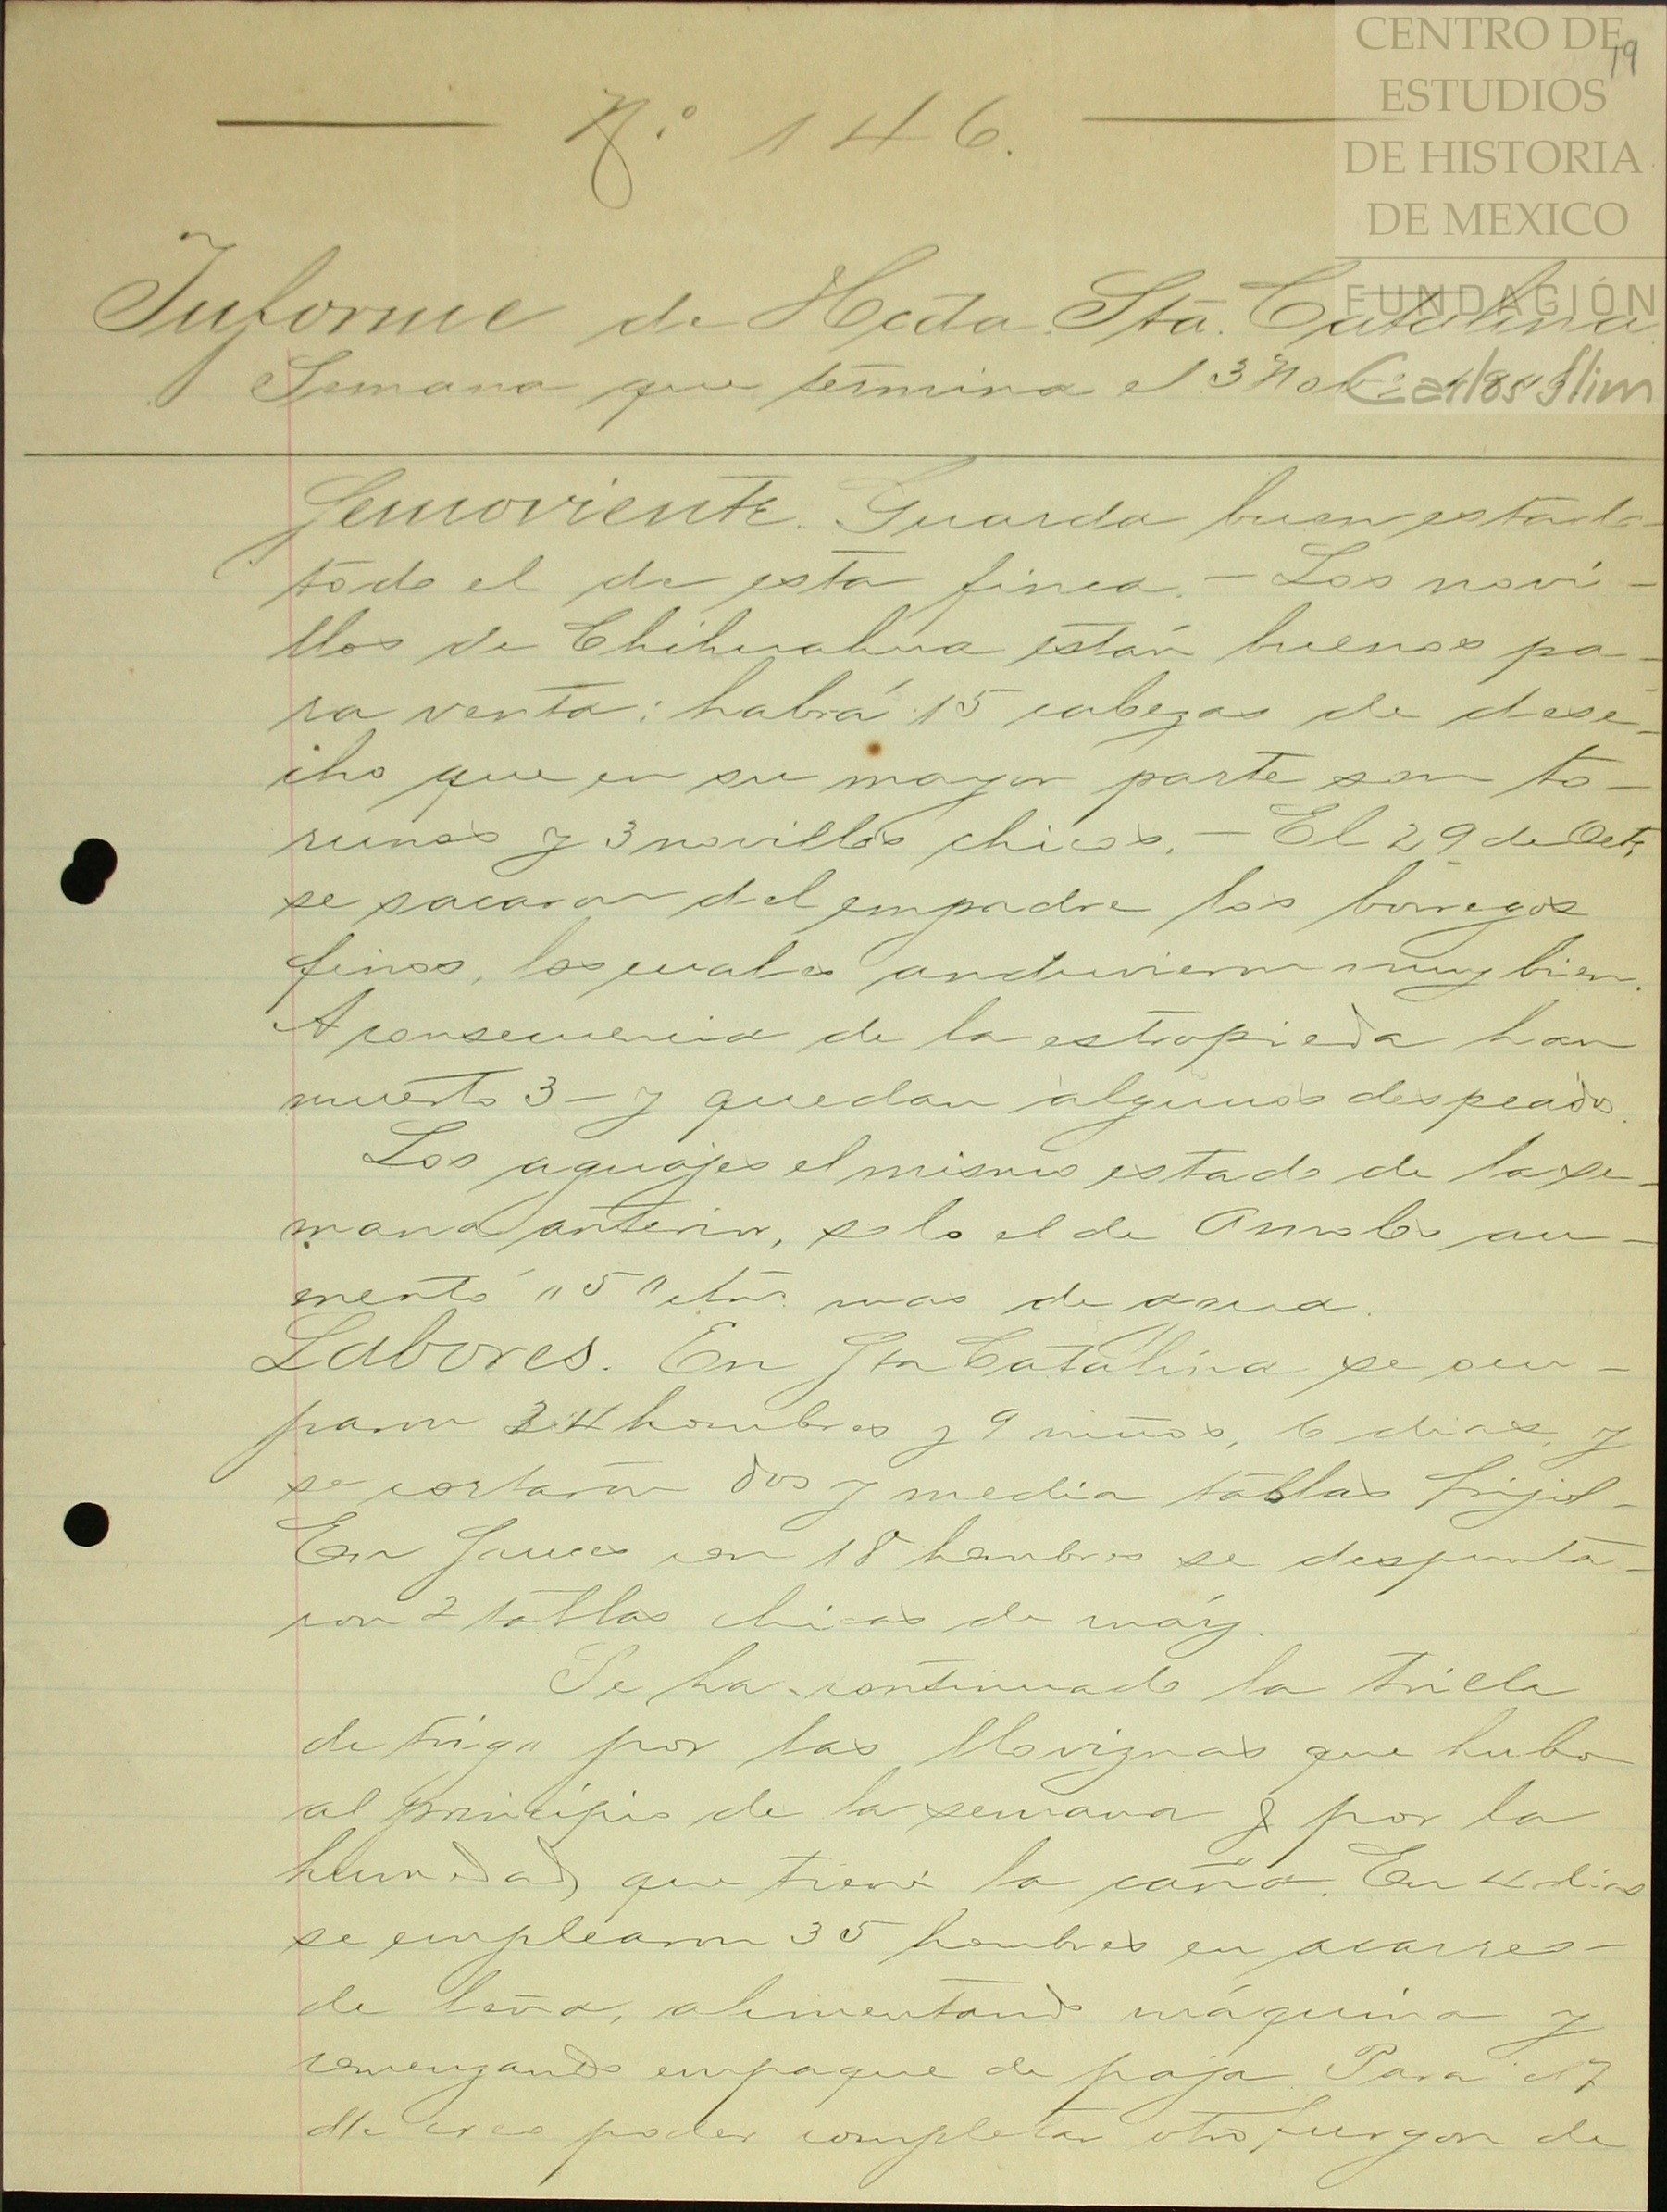 CENTRO DE
ESTUDIOS
DE HISTORIA
DE MEXICO
FUNDACIÓN
Carlos Slim
19
N.º 146.
Informe de Hcda Sta. Catalina
Semana que termina el 3 Nov
Semoviente. Guarda buen estado
todo el de esta finca. - Los novi-
llos de Chihuahua están buenos pa-
ra venta: habrá 15 cabezas de dese-
cho que en su mayor parte son to-
runos y 3 novillos chicos. - El 29 de Oct.
se sacaron del empadre los borregos
finos, los cuales anduvieron muy bien.
A consecuencia de la estropieda han
muerto 3 - y quedan algunos despeados.
Los aguajes el mismo estado de la se-
mana anterior, solo el de Amoles au-
mentó "5" ctm. mas de agua.
Labores. En Sta Catalina se ocu-
paron 24 hombres y 9 niños, 6 dias, y
se cortaron dos y media tablas frijol-
En Sauces con 18 hombres se despunta-
ron 2 tablas chicas de maíz.
Se ha continuado la trilla
de trigo por las lloviznas que hubo
al principio de la semana y por la
humedad que tiene la caña. En 4 dias
se emplearon 35 hombres en acarreo-
de leña, alimentando máquina y
comenzando empaque de paja. Para el 7
creo poder completar otro furgon de